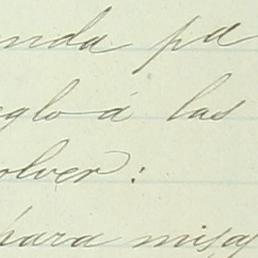 enda pa
eglo á las
olver:
para misa